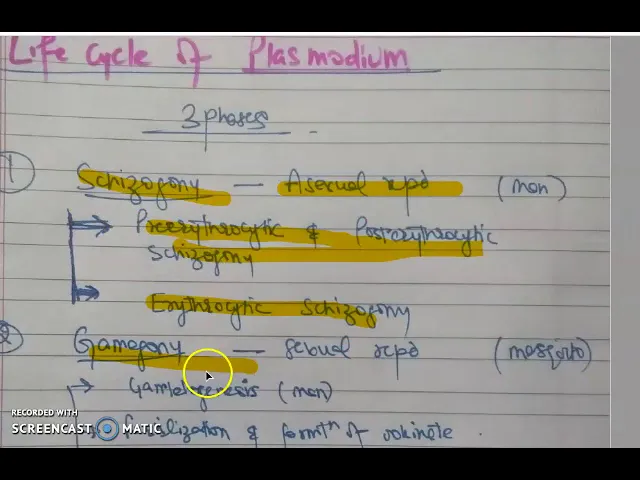 Life cycle of Plasmodium
3 phases
1 Schizogony — Asexual repd (man)
Preerythrocytic & Posterythrocytic
Schizogony
Erythrocytic Schizogony
2 Gamogony — sexual repd (mosquito)
Gametogenesis (man)
Fertilization & formtn of ookinete.
RECORDED WITH
SCREENCAST MATIC